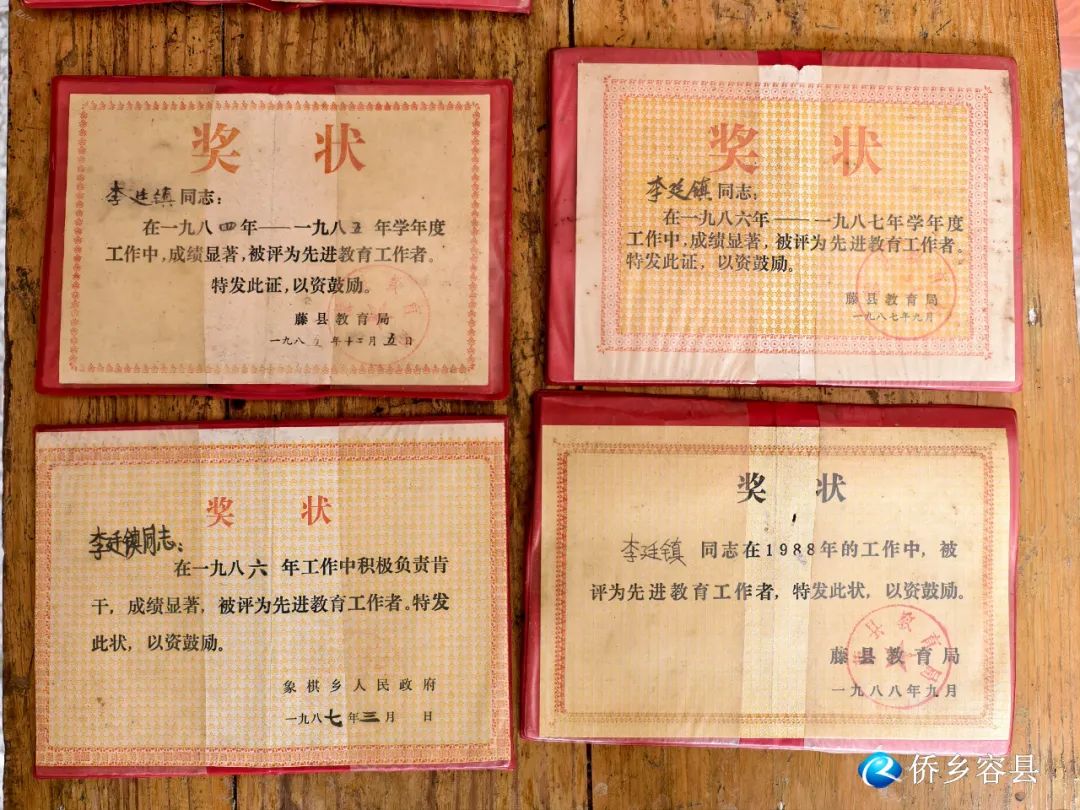 奖 状
李廷镇同志：
在一九八四年——一九八五年学年度
工作中，成绩显著，被评为先进教育工作者。
特发此证，以资鼓励。
藤县教育局
一九八五年十二月五日
奖 状
李廷镇同志：
在一九八六年——一九八七年学年度
工作中，成绩显著，被评为先进教育工作者。
特发此证，以资鼓励。
藤县教育局
一九八七年九月
奖 状
李廷镇同志：
在一九八六年工作中积极负责肯
干，成绩显著，被评为先进教育工作者。特发
此状，以资鼓励。
象棋乡人民政府
一九八七年三月 日
奖 状
李廷镇 同志在1988年的工作中，被
评为先进教育工作者，特发此状，以资鼓励。
藤县教育局
一九八八年九月
侨乡容县